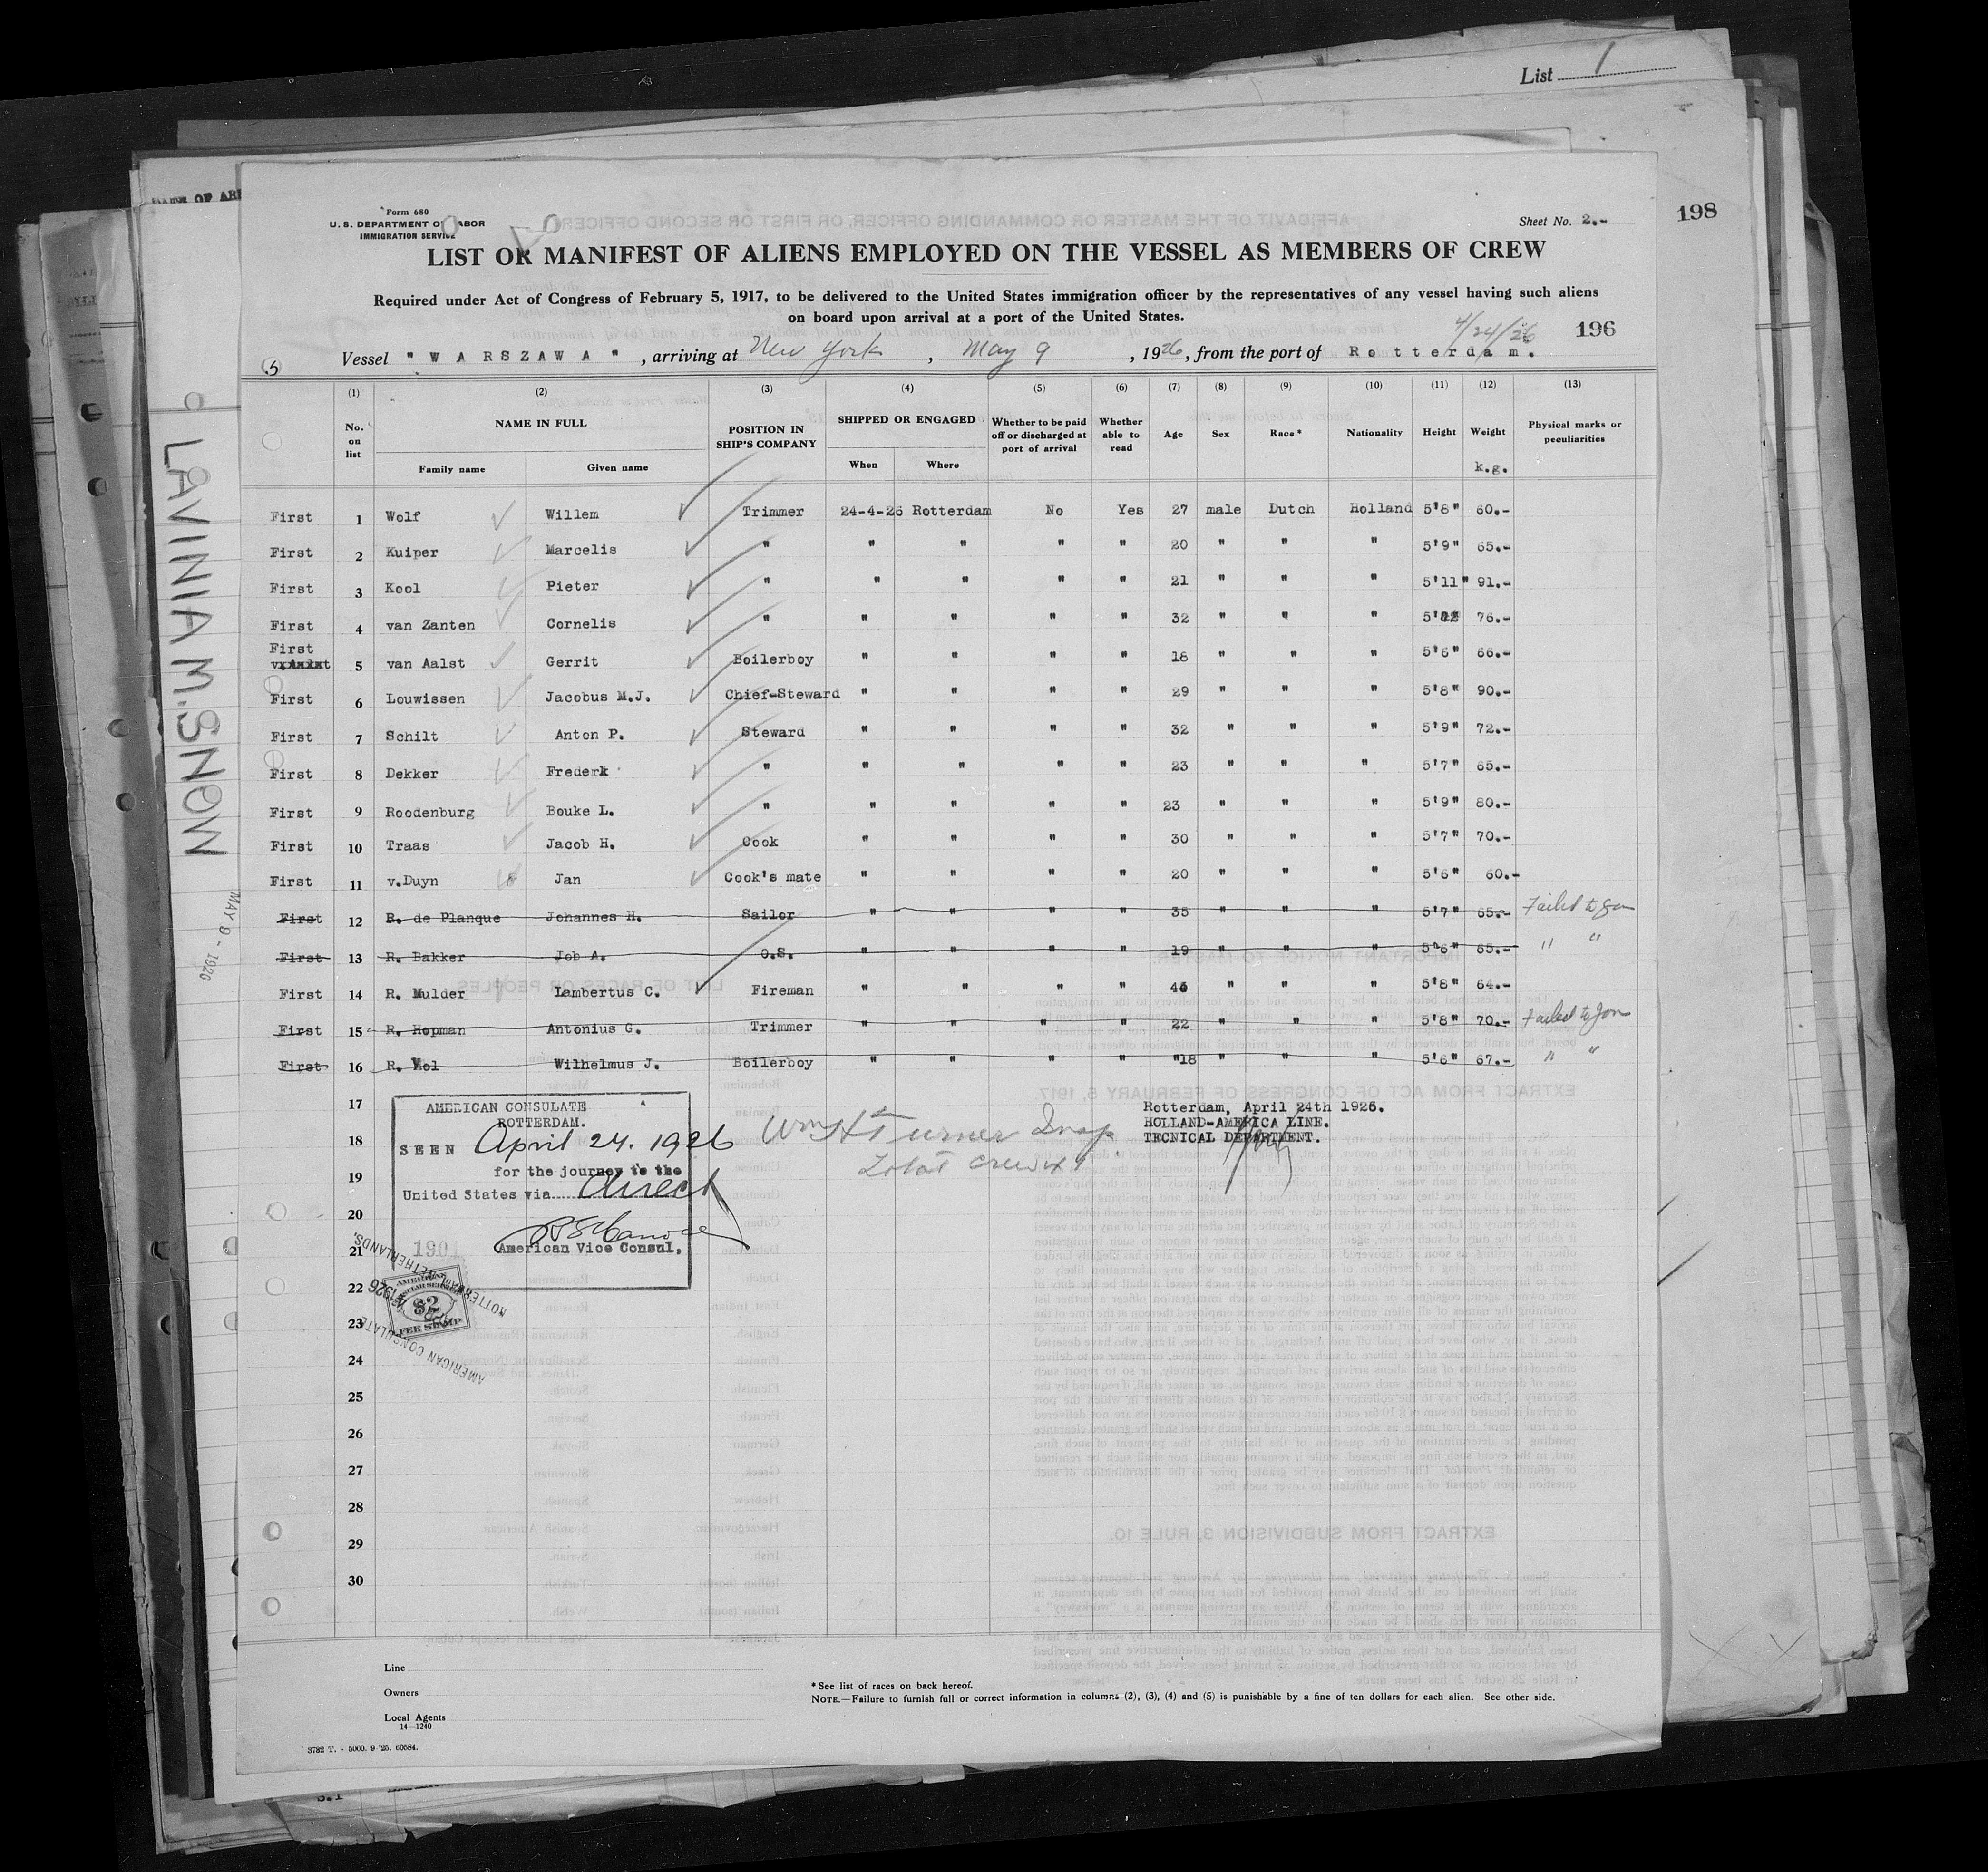 List 1
198
Form 680
U. S. DEPARTMENT OF LABOR
IMMIGRATION SERVICE
Sheet No. 2.-
LIST OR MANIFEST OF ALIENS EMPLOYED ON THE VESSEL AS MEMBERS OF CREW
Required under Act of Congress of February 5, 1917, to be delivered to the United States immigration officer by the representatives of any vessel having such aliens
on board upon arrival at a port of the United States.
4/24/26 196
Vessel "WARSZAWA", arriving at New York, May 9, 1926, from the port of Rotterdam.
(1) (2) (3) (4) (5) (6) (7) (8) (9) (10) (11) (12) (13)
No. on list NAME IN FULL POSITION IN SHIP'S COMPANY SHIPPED OR ENGAGED Whether to be paid off or discharged at port of arrival Whether able to read Age Sex Race* Nationality Height Weight Physical marks or peculiarities
Family name Given name When Where k.g.
First 1 Wolf Willem Trimmer 24-4-26 Rotterdam No Yes 27 male Dutch Holland 5'8" 60.-
First 2 Kuiper Marcelis " " " " " 20 " " " 5'9" 65.-
First 3 Kool Pieter " " " " " 21 " " " 5'11" 91.-
First 4 van Zanten Cornelis " " " " " 32 " " " 76.-
First 5 van Aalst Gerrit Boilerboy " " " " 18 " " " 5'6" 66.-
First 6 Louwissen Jacobus M.J. Chief-Steward " " " " 29 " " " 5'8" 90.-
First 7 Schilt Anton P. Steward " " " " 32 " " " 5'9" 72.-
First 8 Dekker Frederk " " " " " 23 " " " 5'7" 65.-
First 9 Roodenburg Bouke L. " " " " " 23 " " " 5'9" 80.-
First 10 Traas Jacob H. Cook " " " " 30 " " " 5'7" 70.-
First 11 v.Duyn Jan Cook's mate " " " " 20 " " " 5'6" 60.-
First 12 R. de Planque Johannes H. Sailor " " " " 35 " " " 5'7" 65.- Failed to Join
First 13 R. Bakker Job A. O.S. " " " " 19 " " " 5'6" 65.- " "
First 14 R. Mulder Lambertus C. Fireman " " " " " " " 5'8" 64.-
First 15 R. Hopman Antonius G. Trimmer " " " " 22 " " " 5'8" 70.- Failed to Join
First 16 R. Mol Wilhelmus J. Boilerboy " " " " "18 " " " 5'6" 67.- " "
17
18
19
20
21
22
23
24
25
26
27
28
29
30
AMERICAN CONSULATE
ROTTERDAM.
SEEN April 24. 1926
for the journey to the
United States via direct
American Vice Consul.
1901
AMERICAN CONSULATE
ROTTERDAM, NETHERLANDS.
$2
FEE STAMP
Wm H Turner Insp.
Total crew 41
Rotterdam, April 24th 1926.
HOLLAND-AMERICA LINE.
TECNICAL DEPARTMENT.
LAVINIA M. SNOW
MAY 9 - 1926
Line
Owners
Local Agents
14—1240
*See list of races on back hereof.
NOTE.—Failure to furnish full or correct information in columns (2), (3), (4) and (5) is punishable by a fine of ten dollars for each alien. See other side.
3782 T. - 5000. 9-'25. 60584.